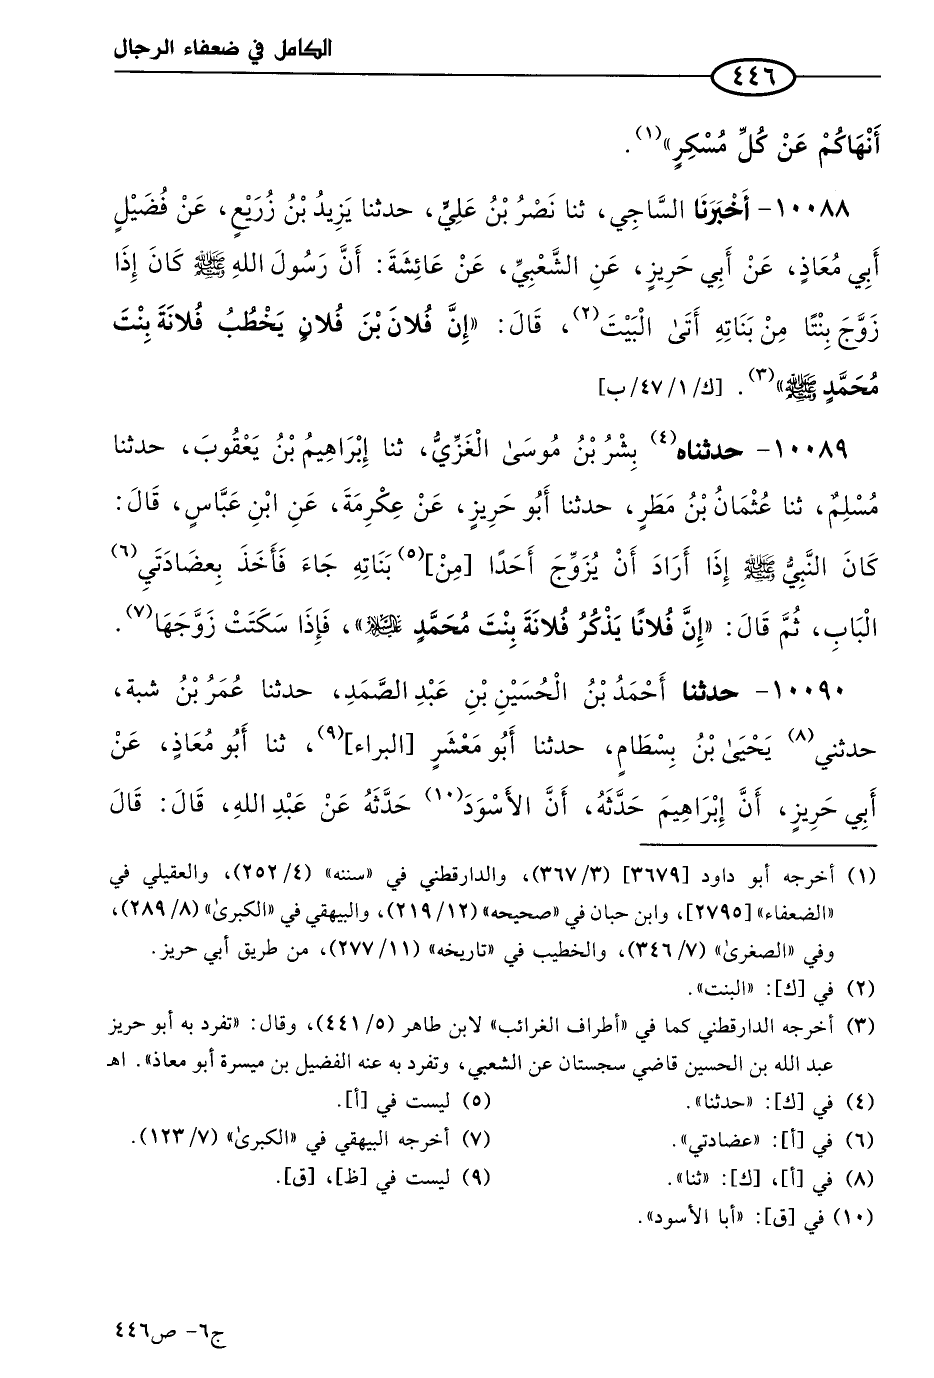 الكامل في ضعفاء الرجال
٤٤٦
أَنْهَاكُمْ عَنْ كُلِّ مُسْكِرٍ»(١).
١٠٠٨٨- أَخْبَرَنَا السَّاجِي، ثنا نَصْرُ بْنُ عَلِيٍّ، حدثنا يَزِيدُ بْنُ زُرَيْعٍ، عَنْ فُضَيْلٍ
أَبِي مُعَاذٍ، عَنْ أَبِي حَرِيزٍ، عَنِ الشَّعْبِيِّ، عَنْ عَائِشَةَ: أَنَّ رَسُولَ اللهِ ﷺ كَانَ إِذَا
زَوَّجَ بِنْتًا مِنْ بَنَاتِهِ أَتَىٰ الْبَيْتَ(٢)، قَالَ: «إِنَّ فُلانَ بْنَ فُلانٍ يَخْطُبُ فُلانَةَ بِنْتَ
مُحَمَّدٍ ﷺ»(٣). [ك/٤٧/١/ب]
١٠٠٨٩- حدثناه(٤) بِشْرُ بْنُ مُوسَىٰ الْغَزِّيُّ، ثنا إِبْرَاهِيمُ بْنُ يَعْقُوبَ، حدثنا
مُسْلِمٌ، ثنا عُثْمَانُ بْنُ مَطَرٍ، حدثنا أَبُو حَرِيزٍ، عَنْ عِكْرِمَةَ، عَنِ ابْنِ عَبَّاسٍ، قَالَ:
كَانَ النَّبِيُّ ﷺ إِذَا أَرَادَ أَنْ يُزَوِّجَ أَحَدًا [مِنْ](٥) بَنَاتِهِ جَاءَ فَأَخَذَ بِعضَادَتَيِ(٦)
الْبَابِ، ثُمَّ قَالَ: «إِنَّ فُلانًا يَذْكُرُ فُلانَةَ بِنْتَ مُحَمَّدٍ عليه السلام»، فَإِذَا سَكَتَتْ زَوَّجَهَا(٧).
١٠٠٩٠- حدثنا أَحْمَدُ بْنُ الْحُسَيْنِ بْنِ عَبْدِ الصَّمَدِ، حدثنا عُمَرُ بْنُ شبة،
حدثني(٨) يَحْيَىٰ بْنُ بِسْطَامٍ، حدثنا أَبُو مَعْشَرٍ [البراء](٩)، ثنا أَبُو مُعَاذٍ، عَنْ
أَبِي حَرِيزٍ، أَنَّ إِبْرَاهِيمَ حَدَّثَهُ، أَنَّ الأَسْوَدَ(١٠) حَدَّثَهُ عَنْ عَبْدِ اللهِ، قَالَ: قَالَ
(١) أخرجه أبو داود [٣٦٧٩] (٣٦٧/٣)، والدارقطني في «سننه» (٢٥٢/٤)، والعقيلي في
«الضعفاء» [٢٧٩٥]، وابن حبان في «صحيحه» (٢١٩/١٢)، والبيهقي في «الكبرىٰ» (٢٨٩/٨)،
وفي «الصغرىٰ» (٣٤٦/٧)، والخطيب في «تاريخه» (٢٧٧/١١)، من طريق أبي حريز.
(٢) في [ك]: «البنت».
(٣) أخرجه الدارقطني كما في «أطراف الغرائب» لابن طاهر (٤٤١/٥)، وقال: «تفرد به أبو حريز
عبد الله بن الحسين قاضي سجستان عن الشعبي، وتفرد به عنه الفضيل بن ميسرة أبو معاذ». اهـ
(٤) في [ك]: «حدثنا». (٥) ليست في [أ].
(٦) في [أ]: «عضادتي». (٧) أخرجه البيهقي في «الكبرىٰ» (١٢٣/٧).
(٨) في [أ]، [ك]: «ثنا». (٩) ليست في [ظ]، [ق].
(١٠) في [ق]: «أبا الأسود».
ج٦- ص٤٤٦